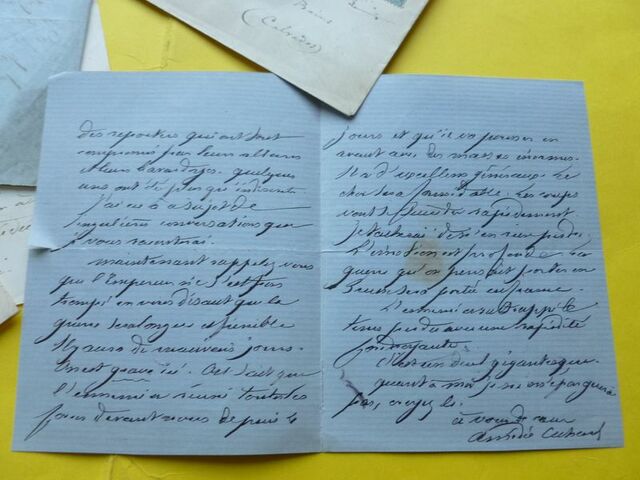 Paris
(Calvados)
des reporters qui ont tout
compromis par leurs allures
et leurs bavardages. quelques
uns ont été plus qu'indiscrets
j'ai eu à ce sujet de
singulières conversations que
je vous raconterai.
maintenant rappelez vous
que l'Empereur ne s'est pas
trompé en vous disant que la
guerre sera longue et pénible
Il y aura de mauvais jours.
On est grave ici. On sait que
l'ennemi a réuni toutes les
forces devant nous depuis
jours et qu'il va pousser en
avant avec des masses énormes.
Il a d'excellents généraux. Le
choc sera formidable. Les coups
vont se succéder rapidement
L'émotion est profonde. La
guerre qu'on pensait porter en
Prusse sera portée en France.
L'ennemi a rattrapé le
temps perdu avec une rapidité
foudroyante.
C'est un duel gigantesque.
quant à moi je ne m'épargnerai
pas, croyez le.
à vous de cœur